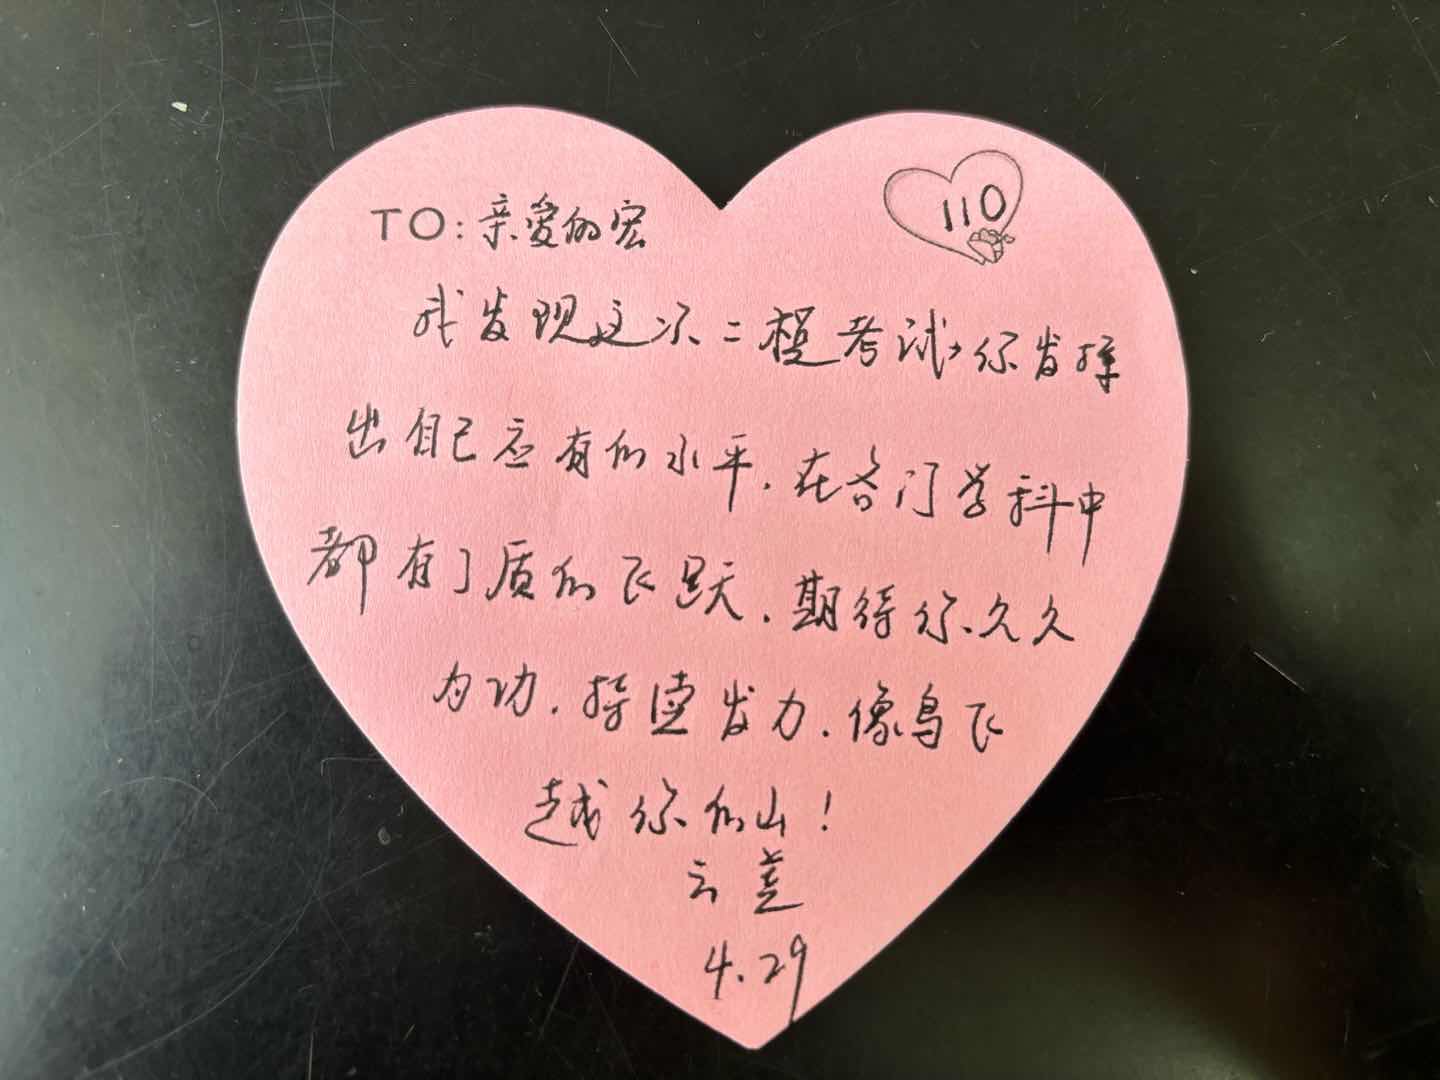 TO:亲爱的宏
110
我发现这次二模考试,你发挥
出自己应有的水平.在各门学科中
都有了质的飞跃.期待你久久
为功.持续发力.像鸟飞
越你的山!
云差
4.29